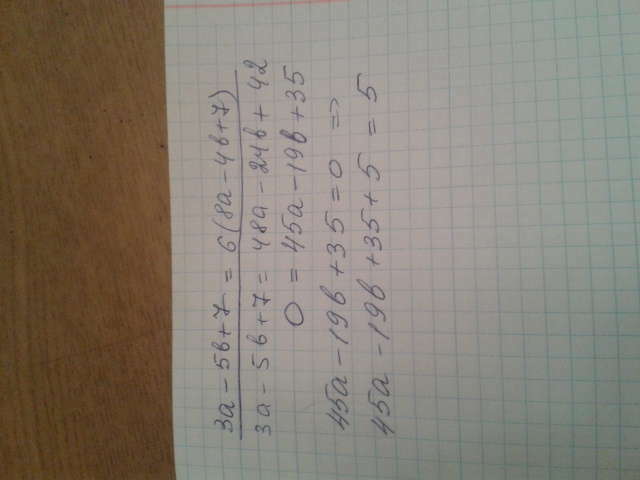 3a - 5b + 7 = 6(8a - 4b + 7)
3a - 5b + 7 = 48a - 24b + 42
0 = 45a - 19b + 35
45a - 19b + 35 = 0 =>
45a - 19b + 35 + 5 = 5